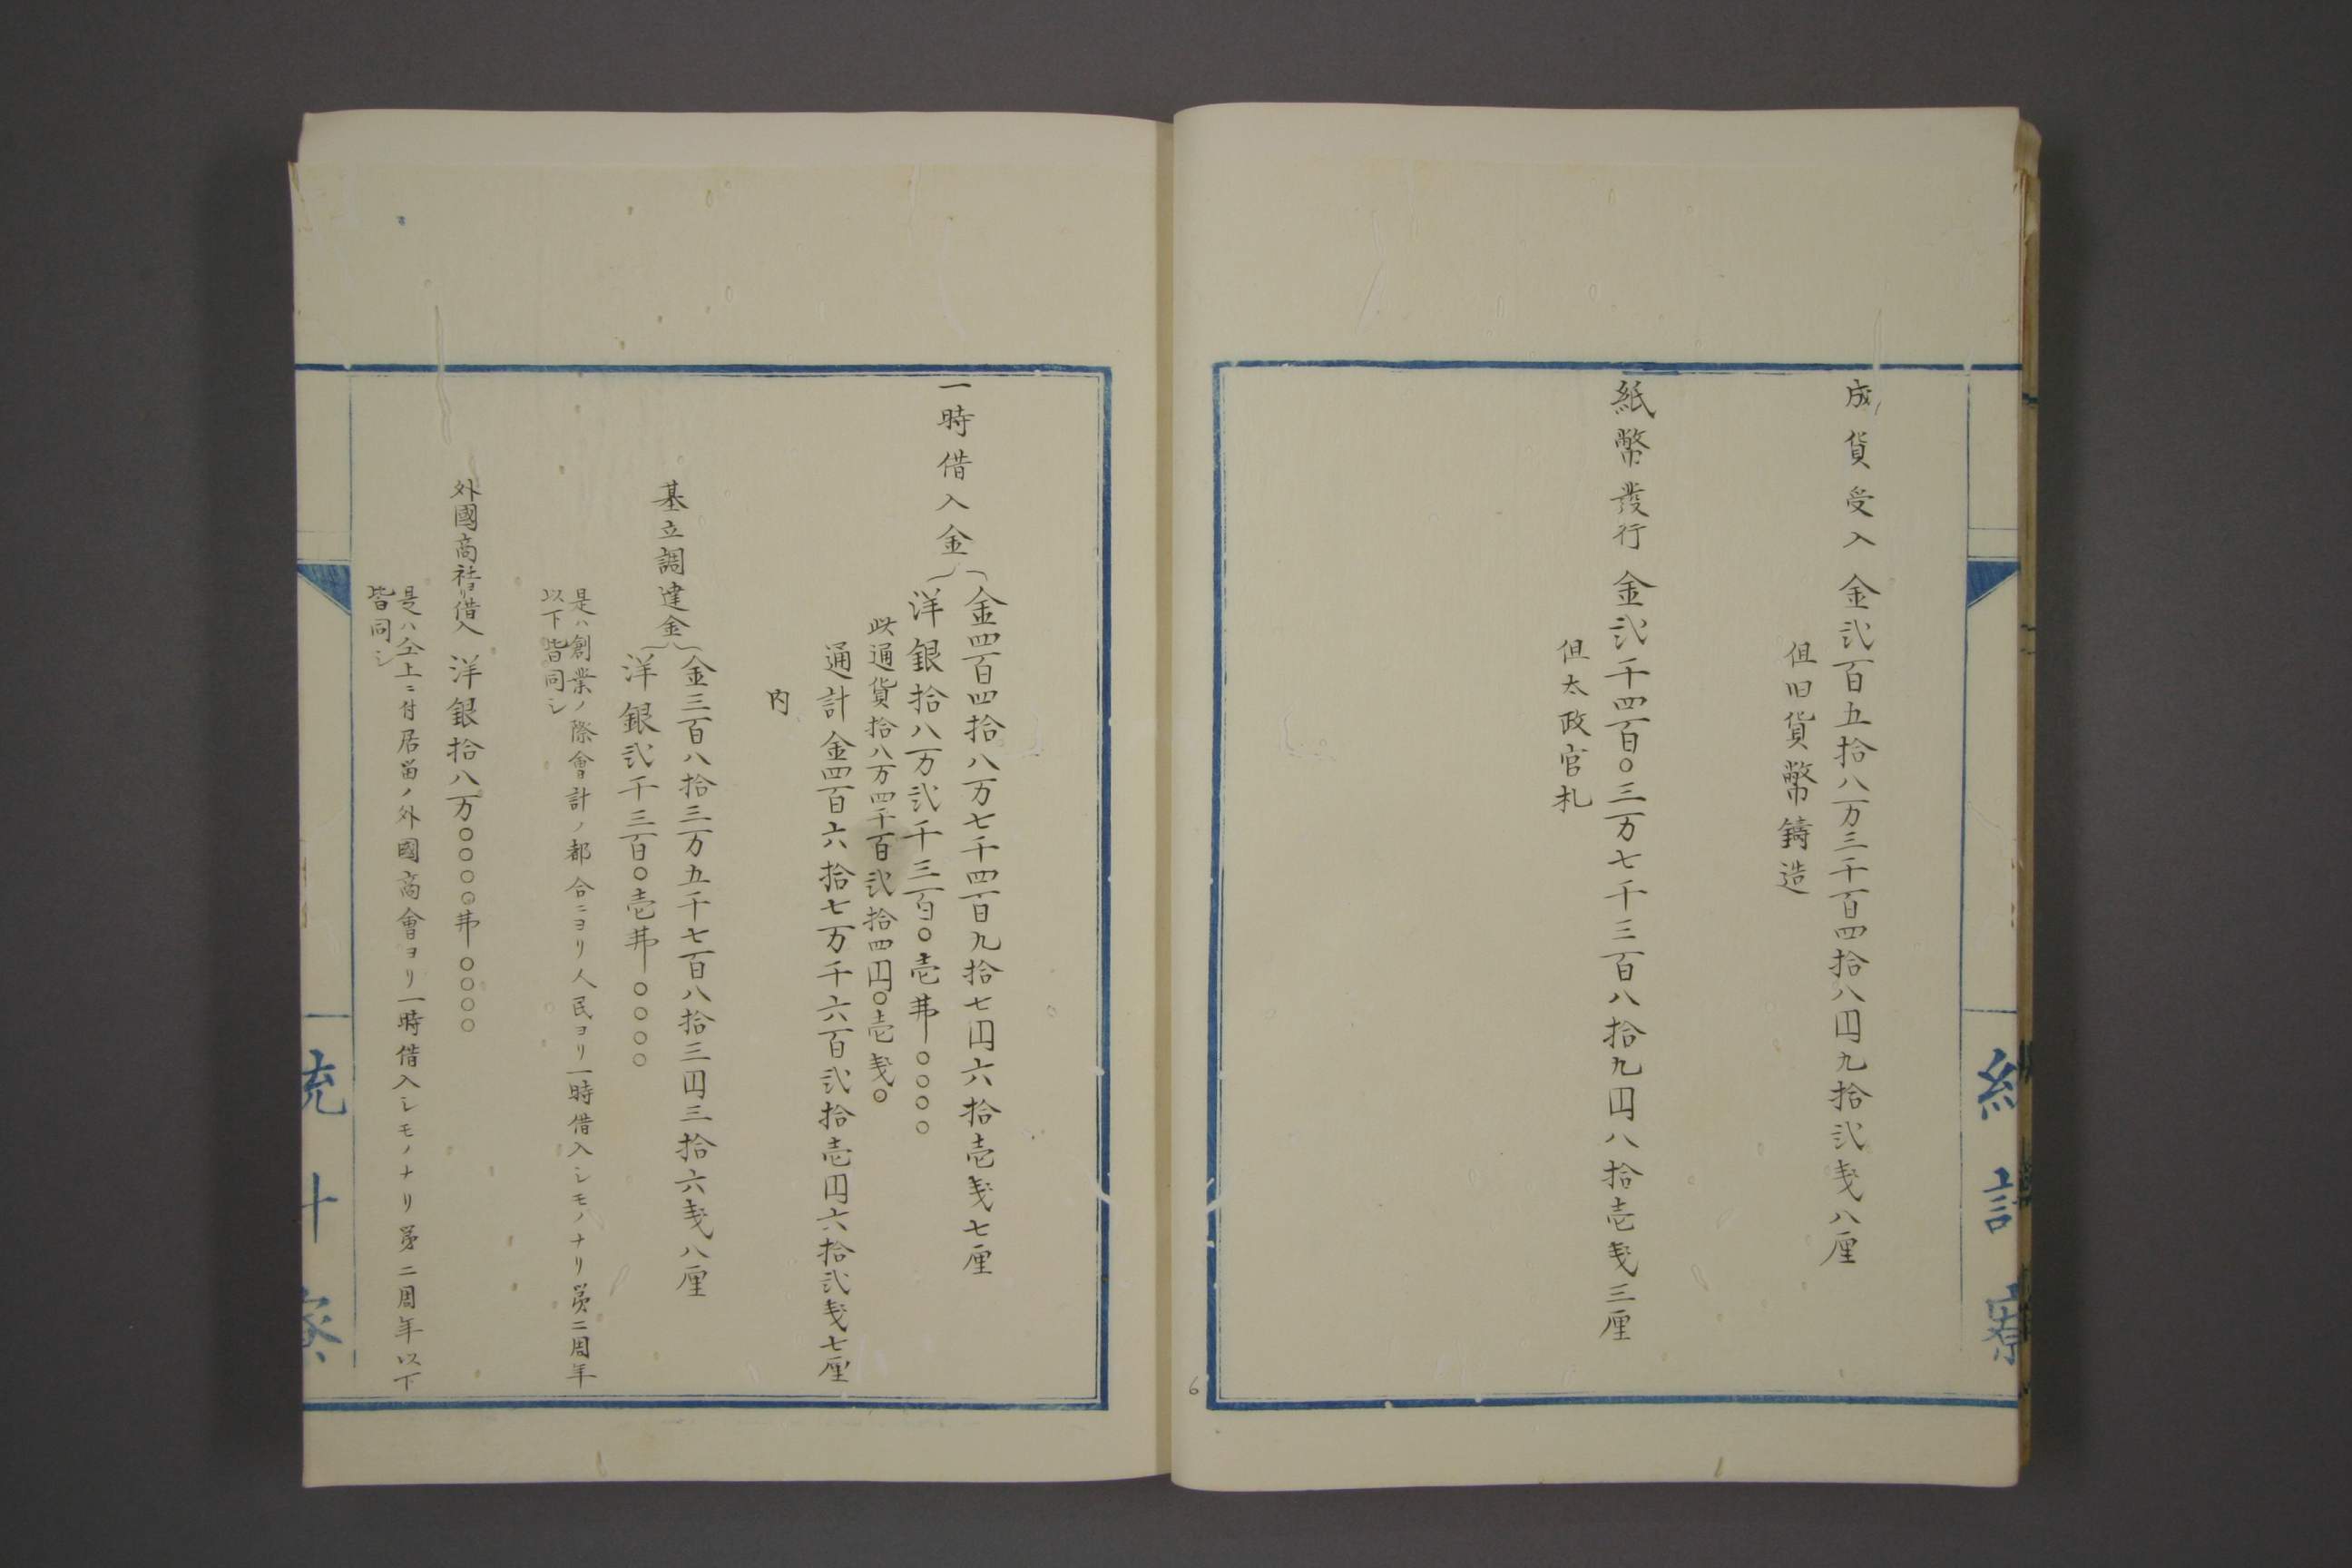 成貨受入 金弐百五拾八万三千百四拾八円九拾弐戔八厘
但旧貨幣鋳造
紙幣發行 金弐千四百〇三万七千三百八拾九円八拾壱戔三厘
但太政官札
統計寮
6
一時借入金
金四百四拾八万七千四百九拾七円六拾壱戔七厘
洋銀拾八万弐千三百〇壱弗〇〇〇〇
此通貨拾八万四千百弐拾四円〇壱戔〇
通計金四百六拾七万千六百弐拾壱円六拾弐戔七厘
内
基立調達金
金三百八拾三万五千七百八拾三円三拾六戔八厘
洋銀弐千三百〇壱弗〇〇〇〇
是ハ創業ノ際會計ノ都合ニヨリ人民ヨリ一時借入シモノナリ第二周年
以下皆同シ
外國商社ヨリ借入 洋銀拾八万〇〇〇〇弗〇〇〇〇
是ハ仝上ニ付居留ノ外國商會ヨリ一時借入シモノナリ第二周年以下
皆同シ
統計寮